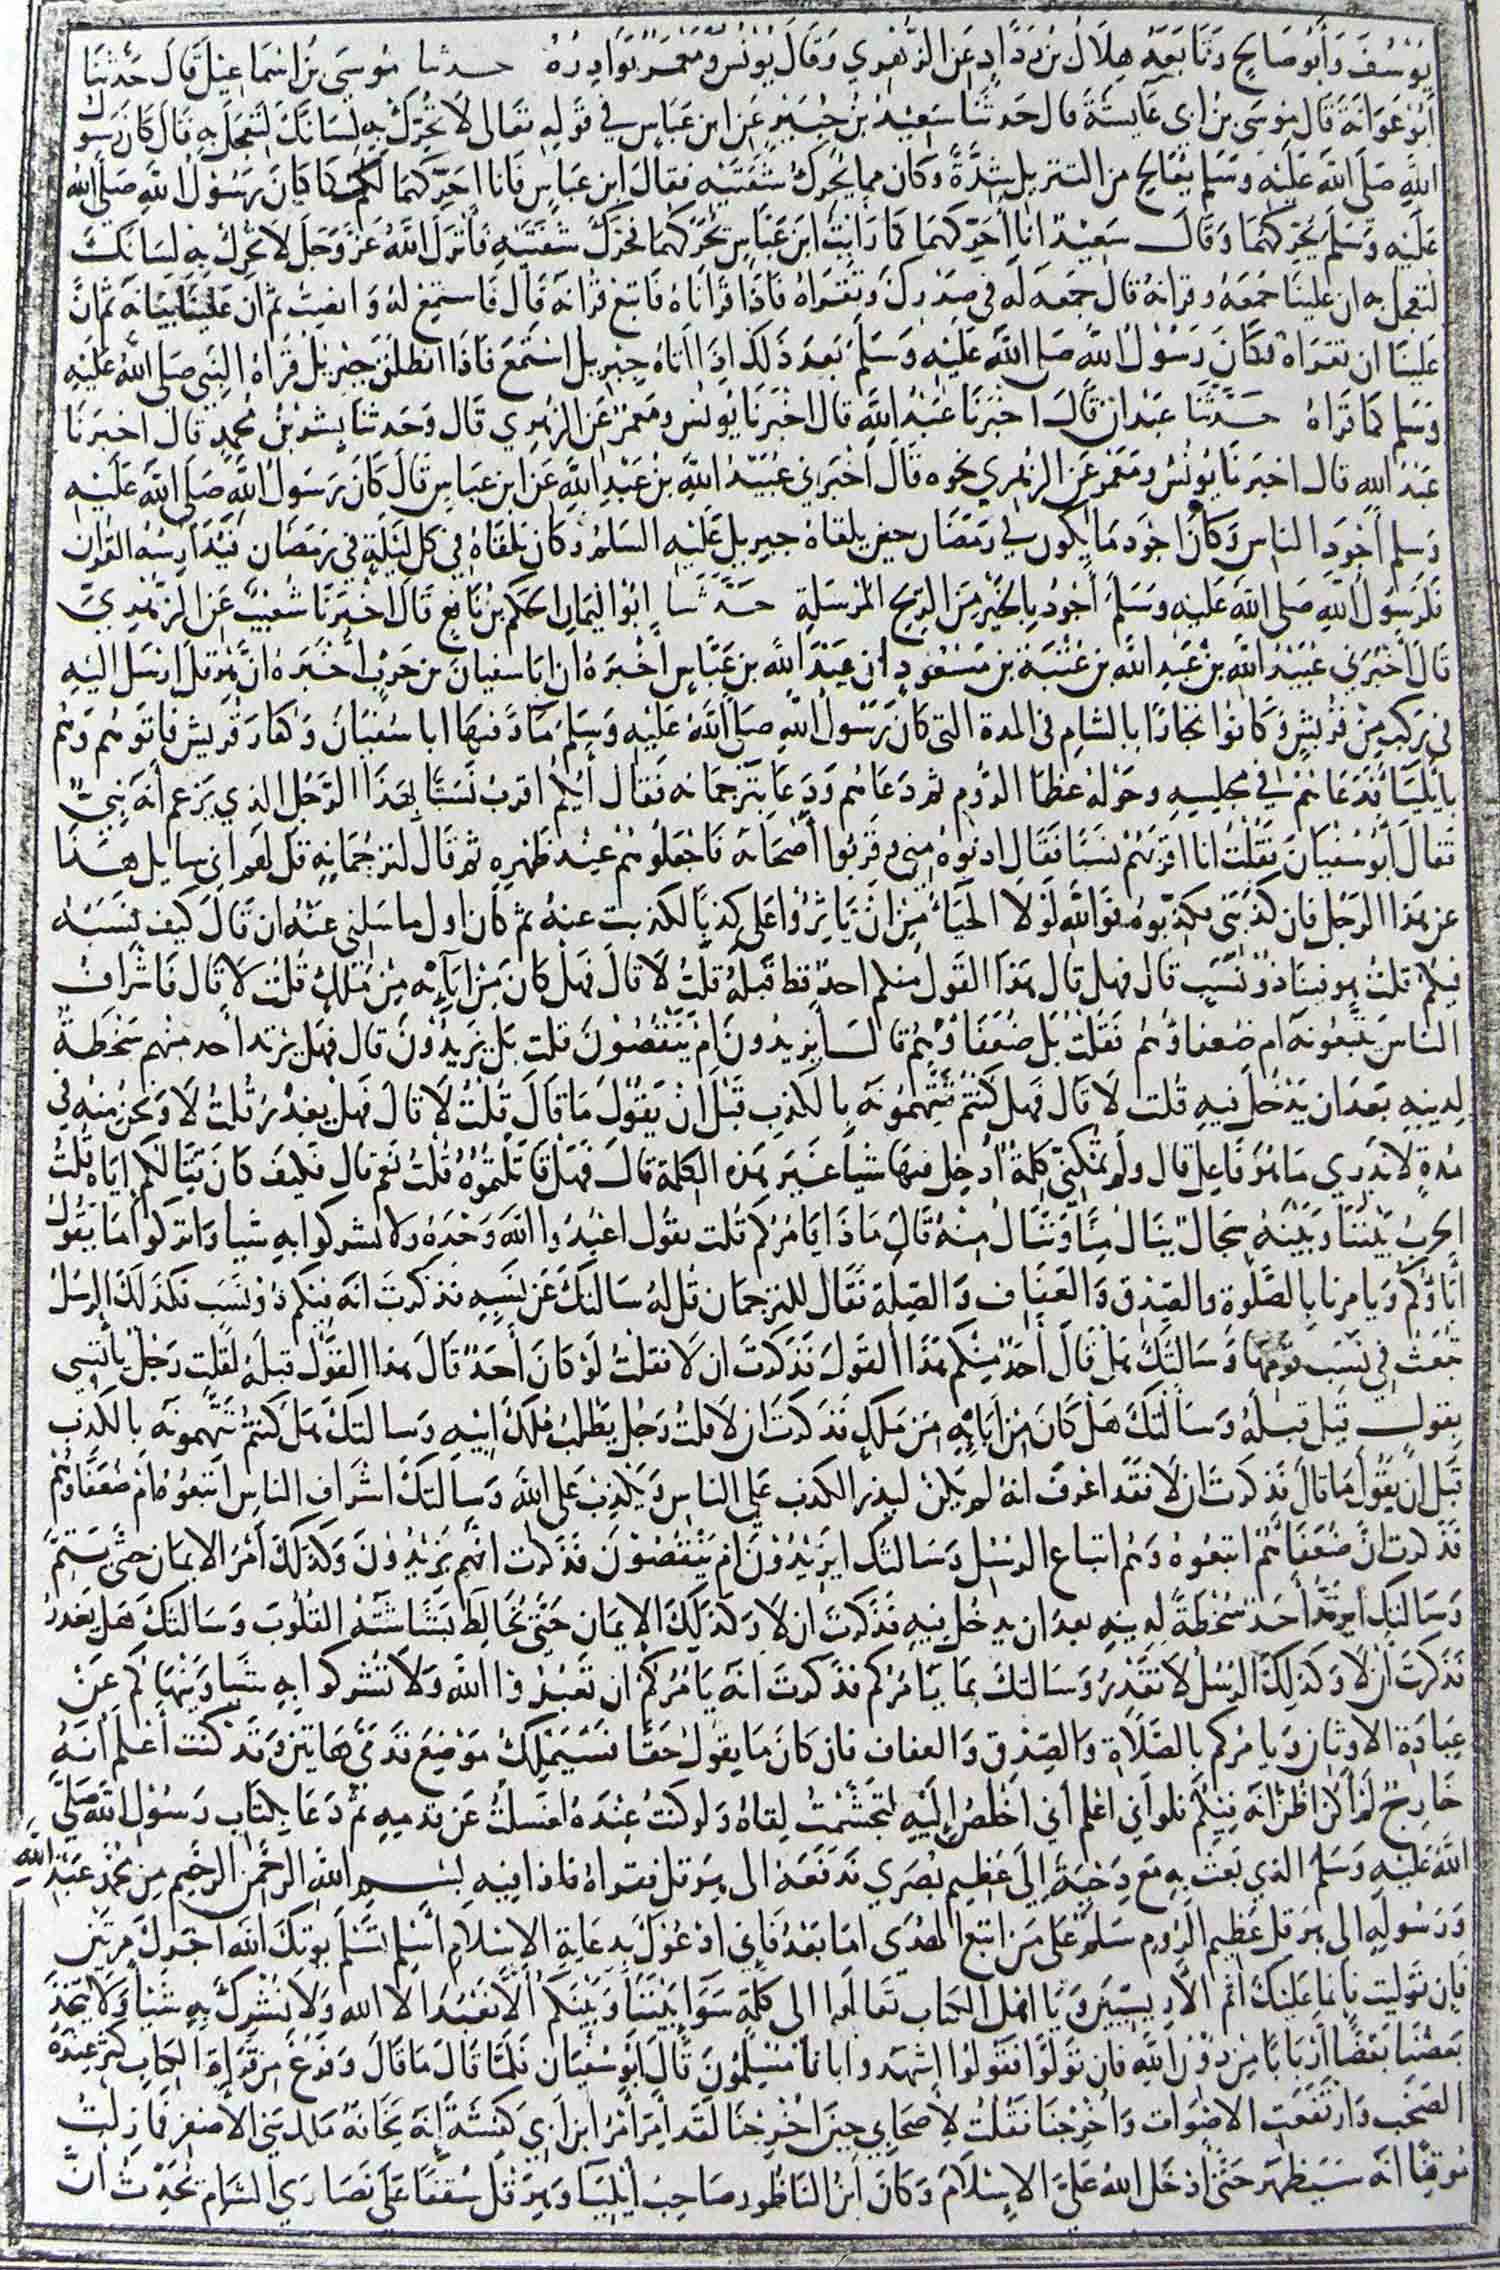 يوسف وأبو صالح وتابعه هلال بن رداد عن الزهري وقال يونس ومعمر بوادره حدثنا موسى بن اسماعيل قال حدثنا
أبو عوانة قال موسى بن أبي عايشة قال حدثنا سعيد بن جبير عن ابن عباس في قوله تعالى لا تحرك به لسانك لتعجل به قال كان رسول
الله صلى الله عليه وسلم يعالج من التنزيل شدة وكان مما يحرك شفتيه فقال ابن عباس فانا احركهما لكم كما كان رسول الله صلى الله
عليه وسلم يحركهما وقال سعيد انا احركهما كما رايت ابن عباس يحركهما فحرك شفتيه فأنزل الله عز وجل لا تحرك به لسانك
لتعجل به ان علينا جمعه وقرانه قال جمعه له في صدرك وتقراه فاذا قراناه فاتبع قرانه قال فاستمع له وانصت ثم ان علينا بيانه ثم ان
علينا ان تقراه فكان رسول الله صلى الله عليه وسلم بعد ذلك اذا اتاه جبريل استمع فاذا انطلق جبريل قراه النبي صلى الله عليه
وسلم كما قراه حدثنا عبدان قال اخبرنا عبد الله قال اخبرنا يونس ومعمر عن الزهري قال وحدثنا بشر بن محمد قال اخبرنا
عبد الله قال اخبرنا يونس ومعمر عن الزهري نحوه قال أخبرني عبيد الله بن عبد الله عن ابن عباس قال كان رسول الله صلى الله عليه
وسلم أجود الناس وكان اجود ما يكون في رمضان حين يلقاه جبريل عليه السلم وكان يلقاه في كل ليلة في رمضان فيدارسه القران
فلرسول الله صلى الله عليه وسلم أجود بالخير من الريح المرسلة حدثنا ابو اليمان الحكم بن نافع قال اخبرنا شعيب عن الزهري
قال أخبرني عبيد الله بن عبد الله بن عتبة بن مسعود ان عبد الله بن عباس أخبره ان ابا سفيان بن حرب أخبره ان هرقل ارسل اليه
في ركب من قريش وكانوا تجارا بالشام في المدة التي كان رسول الله صلى الله عليه وسلم ماد فيها ابا سفيان وكفار قريش فاتوهم وهم
بايلياء فدعاهم في مجلسه وحوله عظما الروم ثم دعاهم ودعا بترجمانه فقال أيكم اقرب نسبا بهذا الرجل الذي يزعم أنه نبي
فقال أبو سفيان فقلت انا اقربهم نسبا فقال ادنوه مني وقربوا أصحابه فاجعلوهم عند ظهره ثم قال لترجمانه قل لهم اني سايل هذا
عن هذا الرجل فان كذبني فكذبوه فوالله لولا الحياء من ان ياثروا على كذبا لكذبت عنه ثم كان اول ما سالني عنه ان قال كيف نسبه
فيكم قلت هو فينا ذو نسب قال فهل قال هذا القول منكم احد قط قبله قلت لا قال فهل كان من ابآيه من ملك قلت لا قال فاشراف
الناس يتبعونه ام ضعفاوهم فقلت بل ضعفاوهم قال ايزيدون ام ينقصون قلت بل يزيدون قال فهل يرتد أحد منهم سخطة
لدينه بعد ان يدخل فيه قلت لا قال فهل كنتم تتهمونه بالكذب قبل ان يقول ما قال قلت لا قال فهل يغدر قلت لا ونحن منه في
مدة لا ندري ما هو فاعل قال ولم تمكني كلمة أدخل فيها شيا غير هذه الكلمة قال فهل قاتلتموه قلت نعم قال فكيف كان قتالكم اياه قلت
الحرب بيننا وبينه سجال ينال منا وننال منه قال ماذا يامركم قلت يقول اعبدوا الله وحده ولا تشركوا به شيا واتركوا ما يقول
أباؤكم ويامرنا بالصلوة والصدق والعفاف والصلة فقال للترجمان قل له سالتك عن نسبه فذكرت انه فيكم ذو نسب فكذلك الرسل
تبعث في نسب قومها وسالتك هل قال أحد منكم هذا القول فذكرت ان لا فقلت لو كان أحد قال هذا القول قبله لقلت رجل يأتسي
بقول قيل قبله وسالتك هل كان من ابايه من ملك فذكرت ان لا قلت رجل يطلب ملك ابيه وسالتك هل كنتم تتهمونه بالكذب
قبل ان يقول ما قال فذكرت ان لا فقد اعرف انه لم يكن ليذر الكذب علي الناس ويكذب على الله وسالتك اشراف الناس اتبعوه ام ضعفاوهم
فذكرت ان ضعفاهم اتبعوه وهم اتباع الرسل وسالتك ايزيدون ام ينقصون فذكرت انهم يزيدون وكذلك أمر الايمان حتى يتم
وسالتك أيرتد أحد سخطة لدينه بعد ان يدخل فيه فذكرت ان لا وكذلك الايمان حتى تخالط بشاشته القلوب وسالتك هل يغدر
فذكرت أن لا وكذلك الرسل لا تغدر وسالتك بما يامركم فذكرت انه يامركم ان تعبدوا الله ولا تشركوا به شيا وينهاكم عن
عبادة الاوثان ويامركم بالصلاة والصدق والعفاف فان كان ما يقول حقا فسيملك موضع قدمي هاتين وقد كنت أعلم أنه
خارج لم أكن اظن انه منكم فلو اني اعلم أني أخلص إليه لتجشمت لقاه ولو كنت عنده لغسلت عن قدميه ثم دعا بكتاب رسول الله صلى
الله عليه وسلم الذي بعث به مع دحية إلى عظيم بصري فدفعه الى هرقل فقراه فاذا فيه بسم الله الرحمن الرحيم من محمد عبد الله
ورسوله الى هرقل عظيم الروم سلم على من اتبع الهدى اما بعد فاني ادعوك بدعاية الاسلام أسلم تسلم يوتك الله اجرك مرتين
فإن توليت فانما عليك اثم الأريسيين ويا اهل الكتاب تعالوا الى كلمة سواء بيننا وبينكم ألا نعبد الا الله ولا نشرك به شيئا ولا يتخذ
بعضنا بعضا أربابا من دون الله فان تولوا فقولوا اشهدوا بانا مسلمون قال أبو سفيان فلما قال ما قال وفرغ من قراة الكتاب كثر عنده
الصخب وارتفعت الاصوات واخرجنا فقلت لأصحابي حين اخرجنا لقد أمر أمر ابن ابي كبشة إنه يخافه ملك بني الأصفر فما زلت
موقنا انه سيظهر حتى أدخل الله علي الاسلام وكان ابن الناطور صاحب ايليآ وهرقل سقفا على نصاري الشام يحدث أن